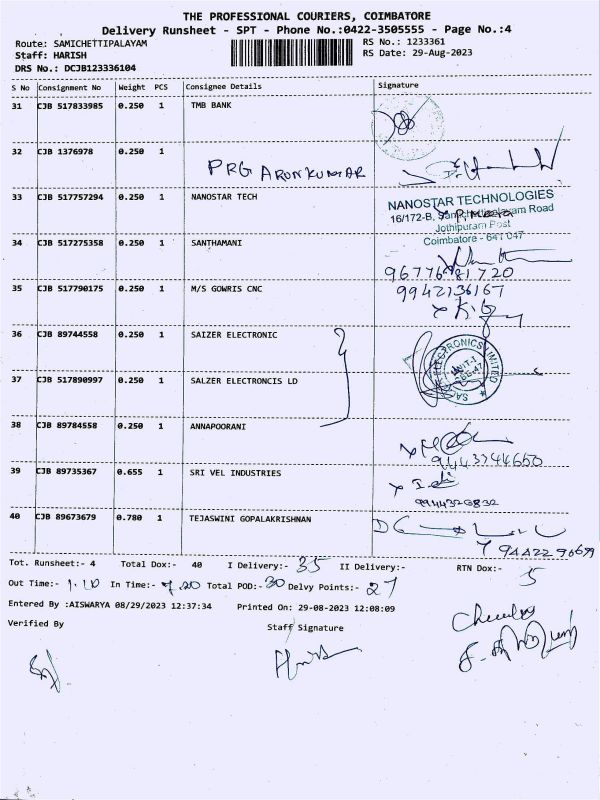 THE PROFESSIONAL COURIERS, COIMBATORE
Delivery Runsheet - SPT - Phone No.:0422-3505555 - Page No.:4
Route: SAMICHETTIPALAYAM RS No.: 1233361
Staff: HARISH RS Date: 29-Aug-2023
DRS No.: DCJB123336104
S No Consignment No Weight PCS Consignee Details Signature
31 CJB 517833985 0.250 1 TMB BANK
32 CJB 1376978 0.250 1
PRG ARUNKUMAR
33 CJB 517757294 0.250 1 NANOSTAR TECH
NANOSTAR TECHNOLOGIES
16/172-B, Samichettipalayam Road
Jothipuram Post
Coimbatore - 641 047
34 CJB 517275358 0.250 1 SANTHAMANI
96776981720
35 CJB 517790175 0.250 1 M/S GOWRIS CNC
9942136167
36 CJB 89744558 0.250 1 SAIZER ELECTRONIC
ELECTRONICS LIMITED
UNIT-I
37 CJB 517890997 0.250 1 SALZER ELECTRONCIS LD
38 CJB 89784558 0.250 1 ANNAPOORANI
9443344650
39 CJB 89735367 0.655 1 SRI VEL INDUSTRIES
9944326832
40 CJB 89673679 0.780 1 TEJASWINI GOPALAKRISHNAN
Tot. Runsheet:- 4 Total Dox:- 40 I Delivery:- 35 II Delivery:- RTN Dox:- 5
Out Time:- 1.10 In Time:- 7.20 Total POD:- 30 Delvy Points:- 27
Entered By :AISWARYA 08/29/2023 12:37:34 Printed On: 29-08-2023 12:08:09
Verified By Staff Signature